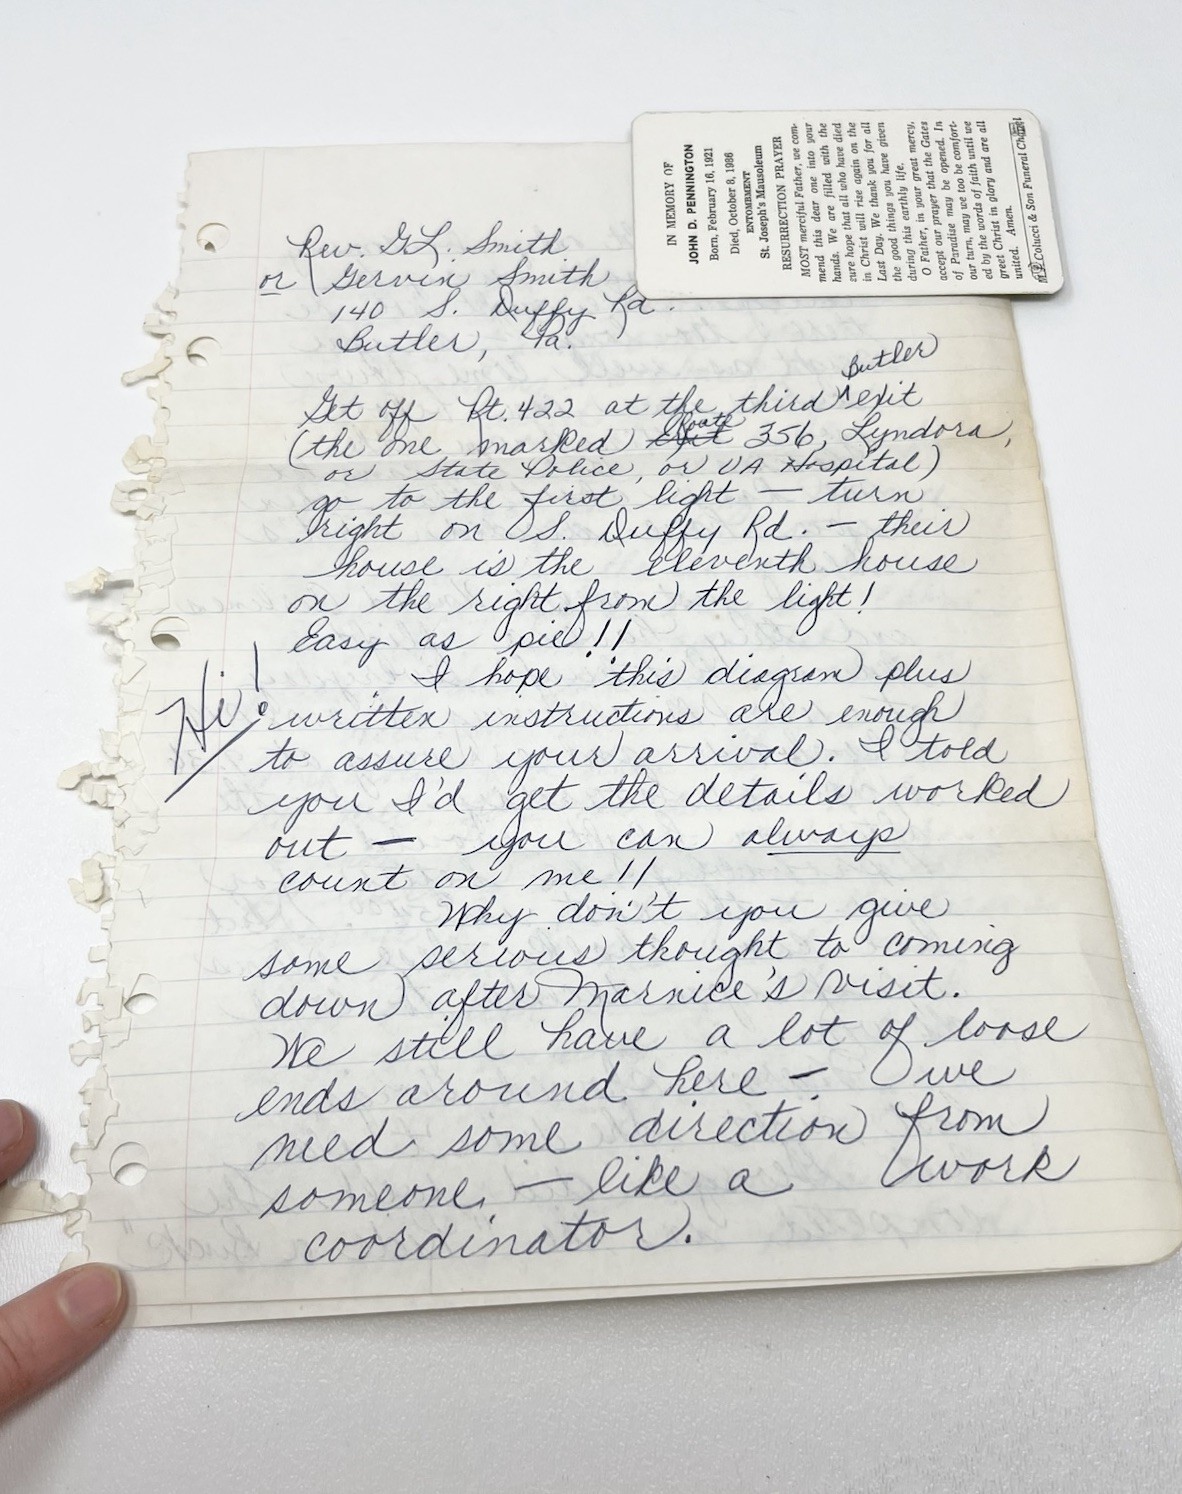 Rev. G.L. Smith
or Gervin Smith
140 S. Duffy Rd.
Butler, Pa.
Butler
Get off Rt. 422 at the third ^ exit
Route
(the one marked 356, Lyndora,
or State Police, or VA Hospital)
go to the first light — turn
right on S. Duffy Rd. — their
house is the eleventh house
on the right from the light!
Easy as pie!!
I hope this diagram plus
Hi!
written instructions are enough
to assure your arrival. I told
you I'd get the details worked
out — you can always
count on me!!
Why don't you give
some serious thought to coming
down after Marnice's visit.
We still have a lot of loose
ends around here — we
need some direction from
someone. — like a work
coordinator.
IN MEMORY OF
JOHN D. PENNINGTON
Born, February 16, 1921
Died, October 8, 1986
ENTOMBMENT
St. Joseph's Mausoleum
RESURRECTION PRAYER
MOST merciful Father, we com-
mend this dear one into your
hands. We are filled with the
sure hope that all who have died
in Christ will rise again on the
Last Day. We thank you for all
the good things you have given
during this earthly life.
O Father, in your great mercy,
accept our prayer that the Gates
of Paradise may be opened. In
our turn, may we too be comfort-
ed by the words of faith until we
greet Christ in glory and are all
united. Amen.
Colucci & Son Funeral Chapel